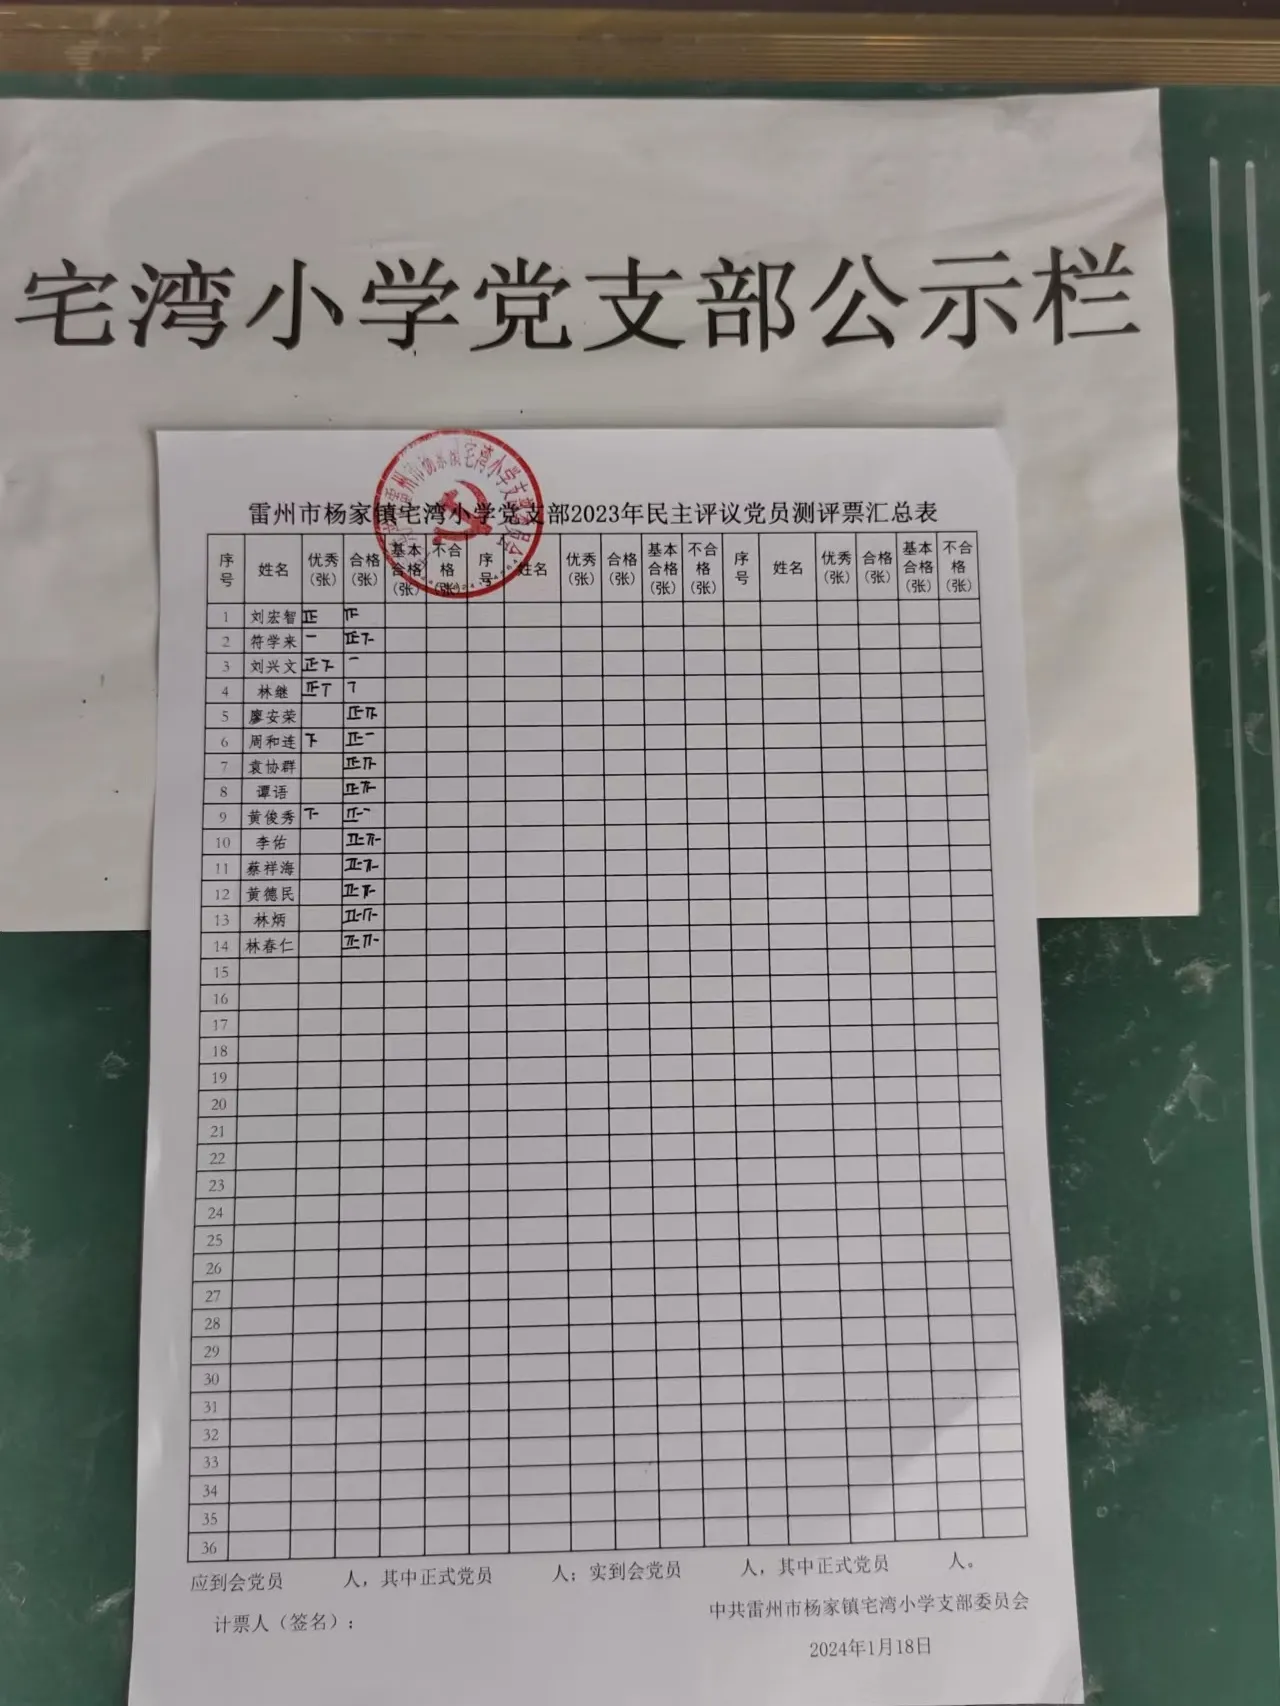 宅湾小学党支部公示栏
雷州市杨家镇宅湾小学党支部2023年民主评议党员测评票汇总表
序号 姓名 优秀(张) 合格(张) 基本合格(张) 不合格(张) 序号 姓名 优秀(张) 合格(张) 基本合格(张) 不合格(张) 序号 姓名 优秀(张) 合格(张) 基本合格(张) 不合格(张)
1 刘宏智 正
2 符学来 一 正
3 刘兴文 正 一
4 林继 正
5 廖安荣 正
6 周和连 正一
7 袁协群 正
8 谭语 正
9 黄俊秀 正一
10 李佑 正
11 蔡祥海 正
12 黄德民 正
13 林炳 正
14 林春仁 正
15
16
17
18
19
20
21
22
23
24
25
26
27
28
29
30
31
32
33
34
35
36
应到会党员 人，其中正式党员 人；实到会党员 人，其中正式党员 人。
计票人（签名）：
中共雷州市杨家镇宅湾小学支部委员会
2024年1月18日